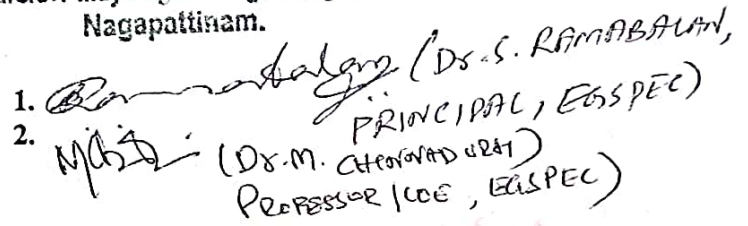 Nagapattinam.
1. (Dr. S. RAMABALAN,
PRINCIPAL, EGSPEC)
2. (Dr. M. CHINNADURAI)
PROFESSOR / COE, EGSPEC)